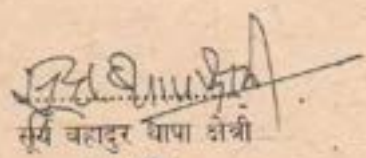 सूर्य बहादुर थापा क्षेत्री